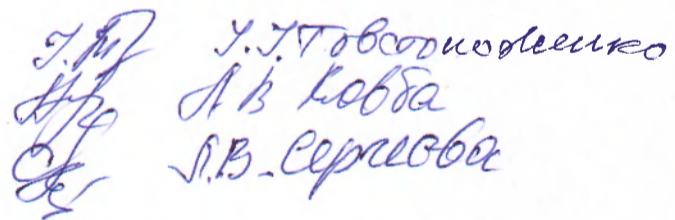 І.І. Товстоноженко
Л В Ковба
Л.В. Сергеева